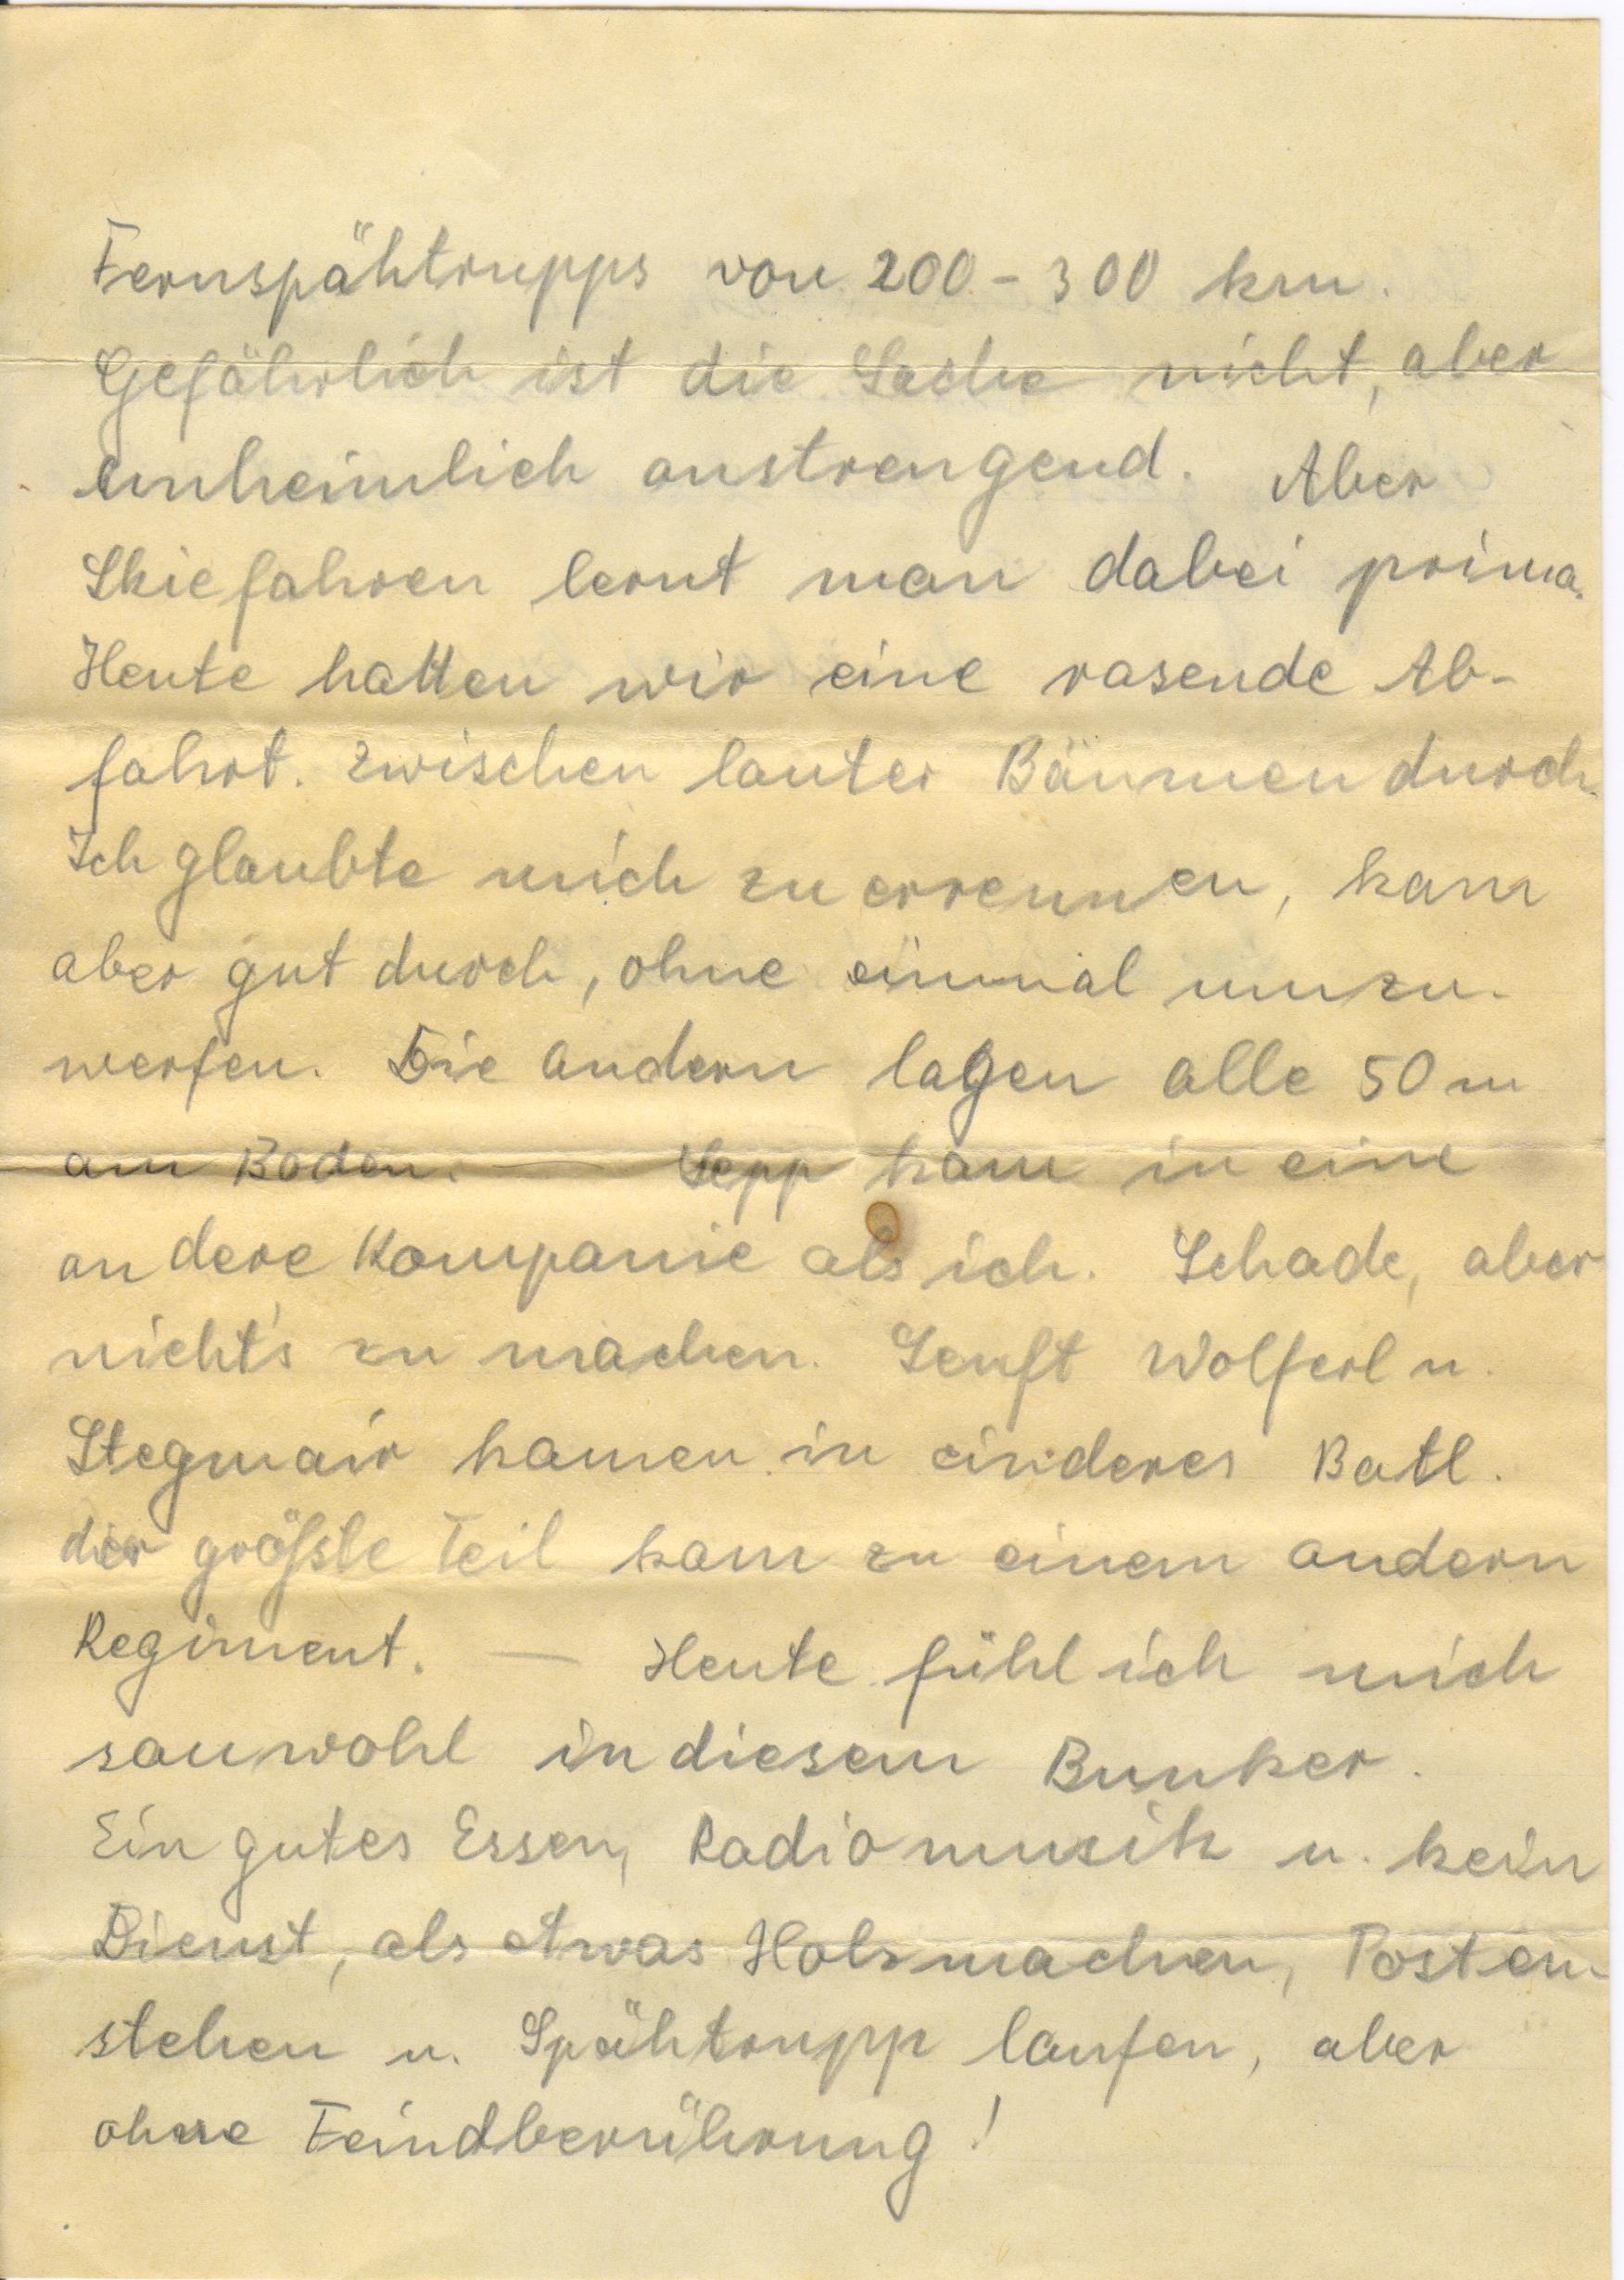 Fernspähtrupps von 200 - 300 km.
Gefährlich ist die Sache nicht, aber
unheimlich anstrengend. Aber
Skiefahren lernt man dabei prima.
Heute hatten wir eine rasende Ab-
fahrt. zwischen lauter Bäumen durch.
Ich glaubte mich zu errennen, kam
aber gut durch, ohne einmal umzu-
werfen. Die andern lagen alle 50 m
am Boden. — Sepp kam in eine
andere Kompanie als ich. Schade, aber
nicht's zu machen. Senft Wolferl u.
Stegmair kamen in einderes Batl.
der größte Teil kam zu einem andern
Regiment. — Heute fühl ich mich
sauwohl in diesem Bunker.
Ein gutes Essen, Radiomusik u. kein
Dienst, als etwas Holzmachen, Posten-
stehen u. Spähtrupp laufen, aber
ohne Feindberührung!